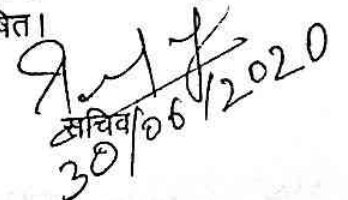 षेत।
सचिव
30/06/2020